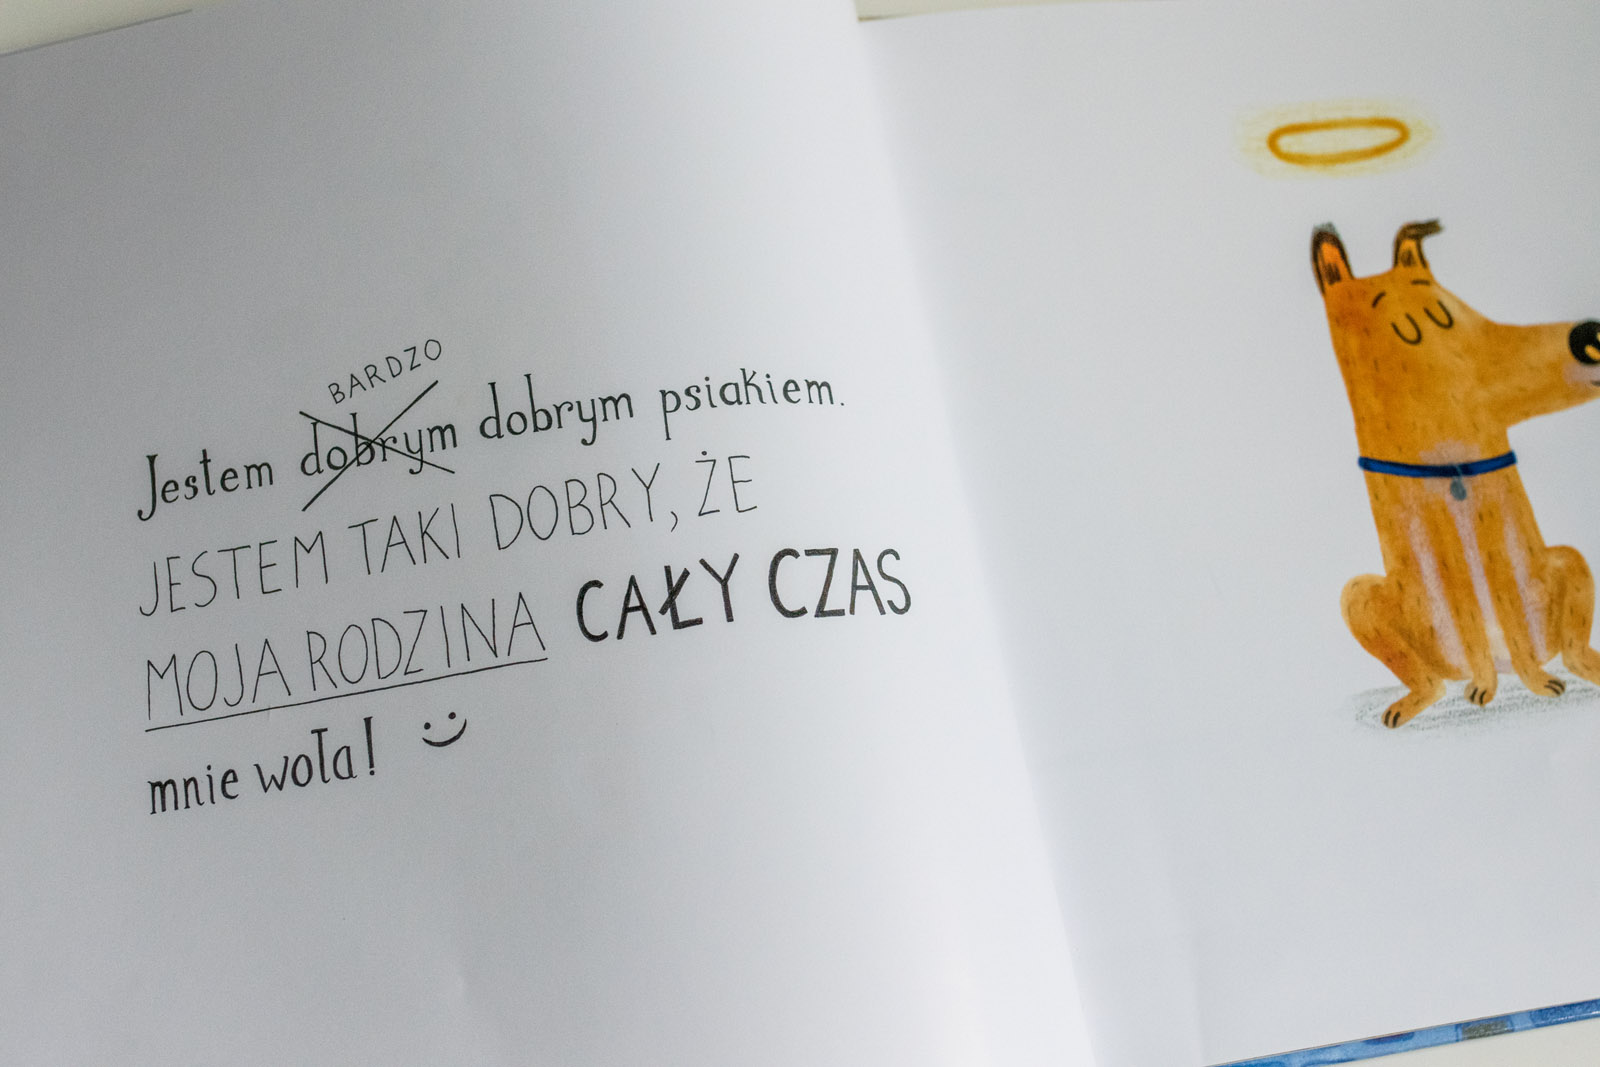 BARDZO
Jestem dobrym dobrym psiakiem.
JESTEM TAKI DOBRY, ŻE
MOJA RODZINA CAŁY CZAS
mnie woła! :)